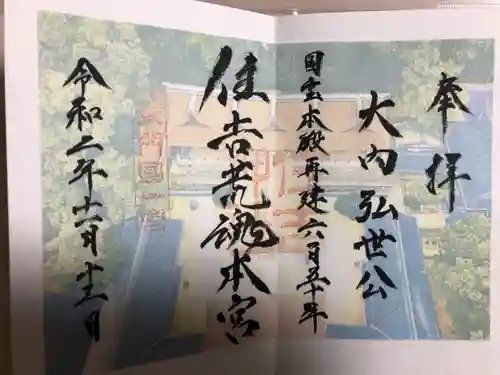 奉拝
大内弘世公
国宝本殿再建六百五十年
住吉荒魂本宮
長門國一宮
令和二年十一月 日